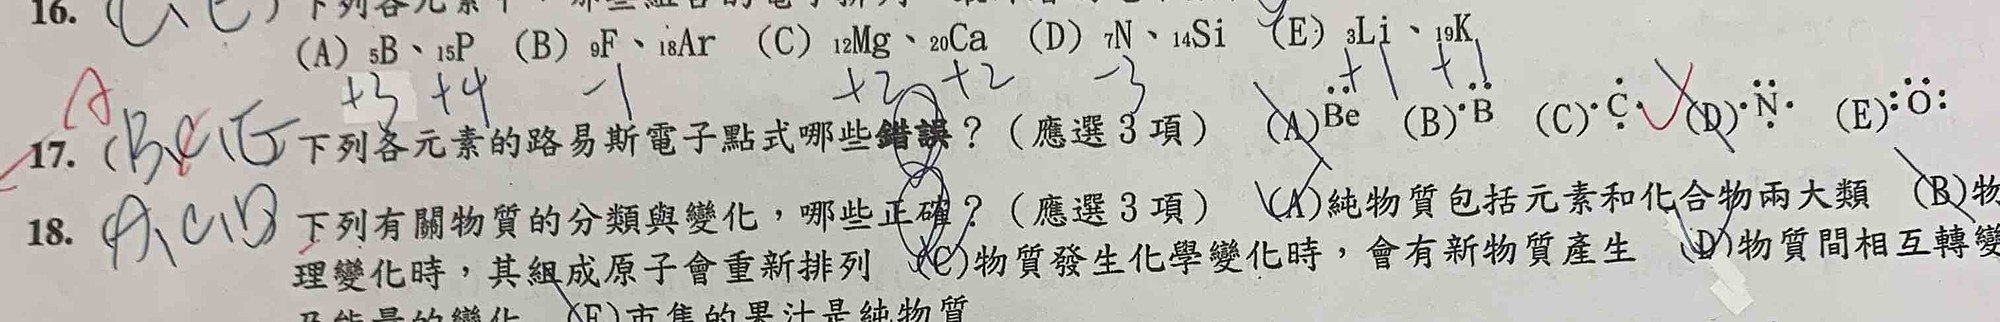 16.
(A) ₅B、₁₅P (B) ₉F、₁₈Ar (C) ₁₂Mg、₂₀Ca (D) ₇N、₁₄Si (E) ₃Li、₁₉K
+3 +4 -1 +2 +2 -3 +1 +1
A
17. (B,C,E 下列各元素的路易斯電子點式哪些錯誤?(應選3項) (A) Be (B) ·B (C) ·C· (D) ·N· (E) :O:
18. A,C,D 下列有關物質的分類與變化,哪些正確?(應選3項) (A)純物質包括元素和化合物兩大類 (B)物
理變化時,其組成原子會重新排列 (C)物質發生化學變化時,會有新物質產生 (D)物質間相互轉變
及能量的變化 (E)市售的果汁是純物質